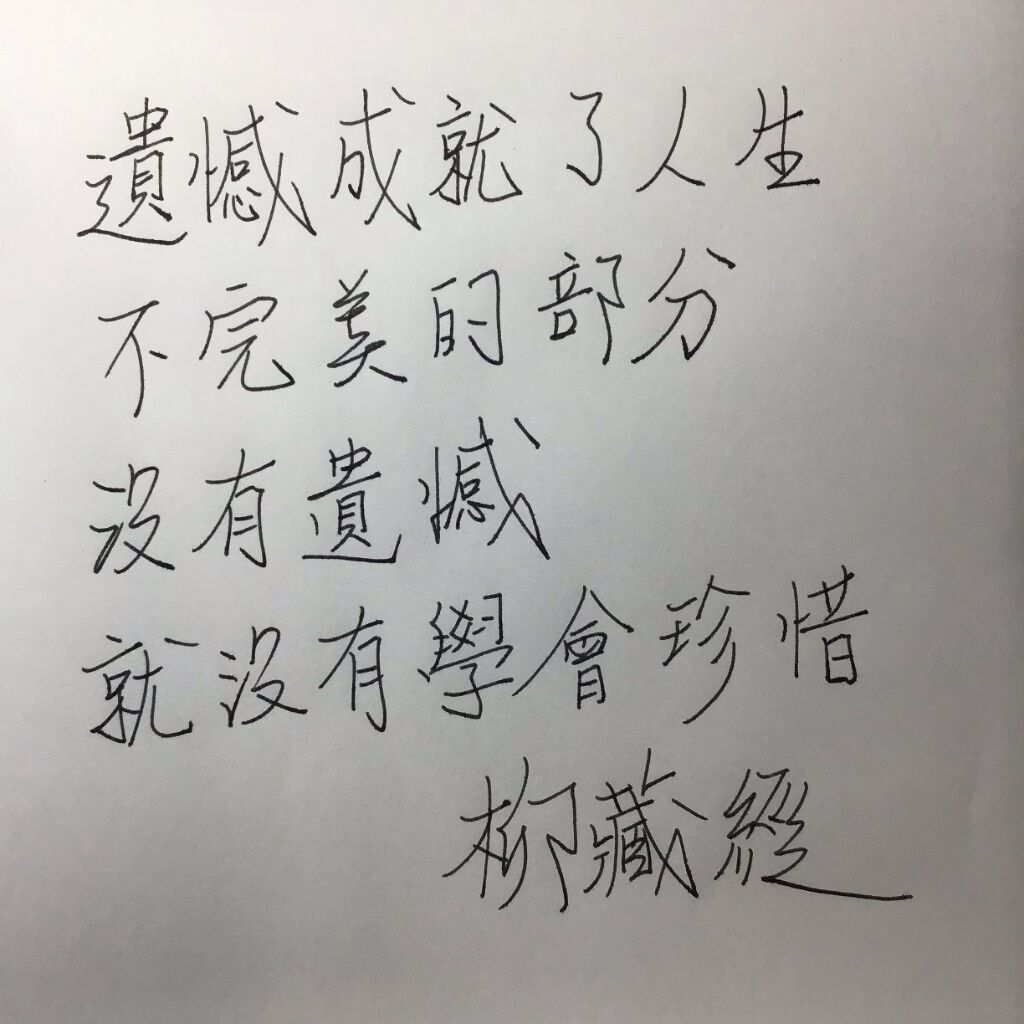 遺憾成就了人生
不完美的部分
沒有遺憾
就沒有學會珍惜
柳藏經